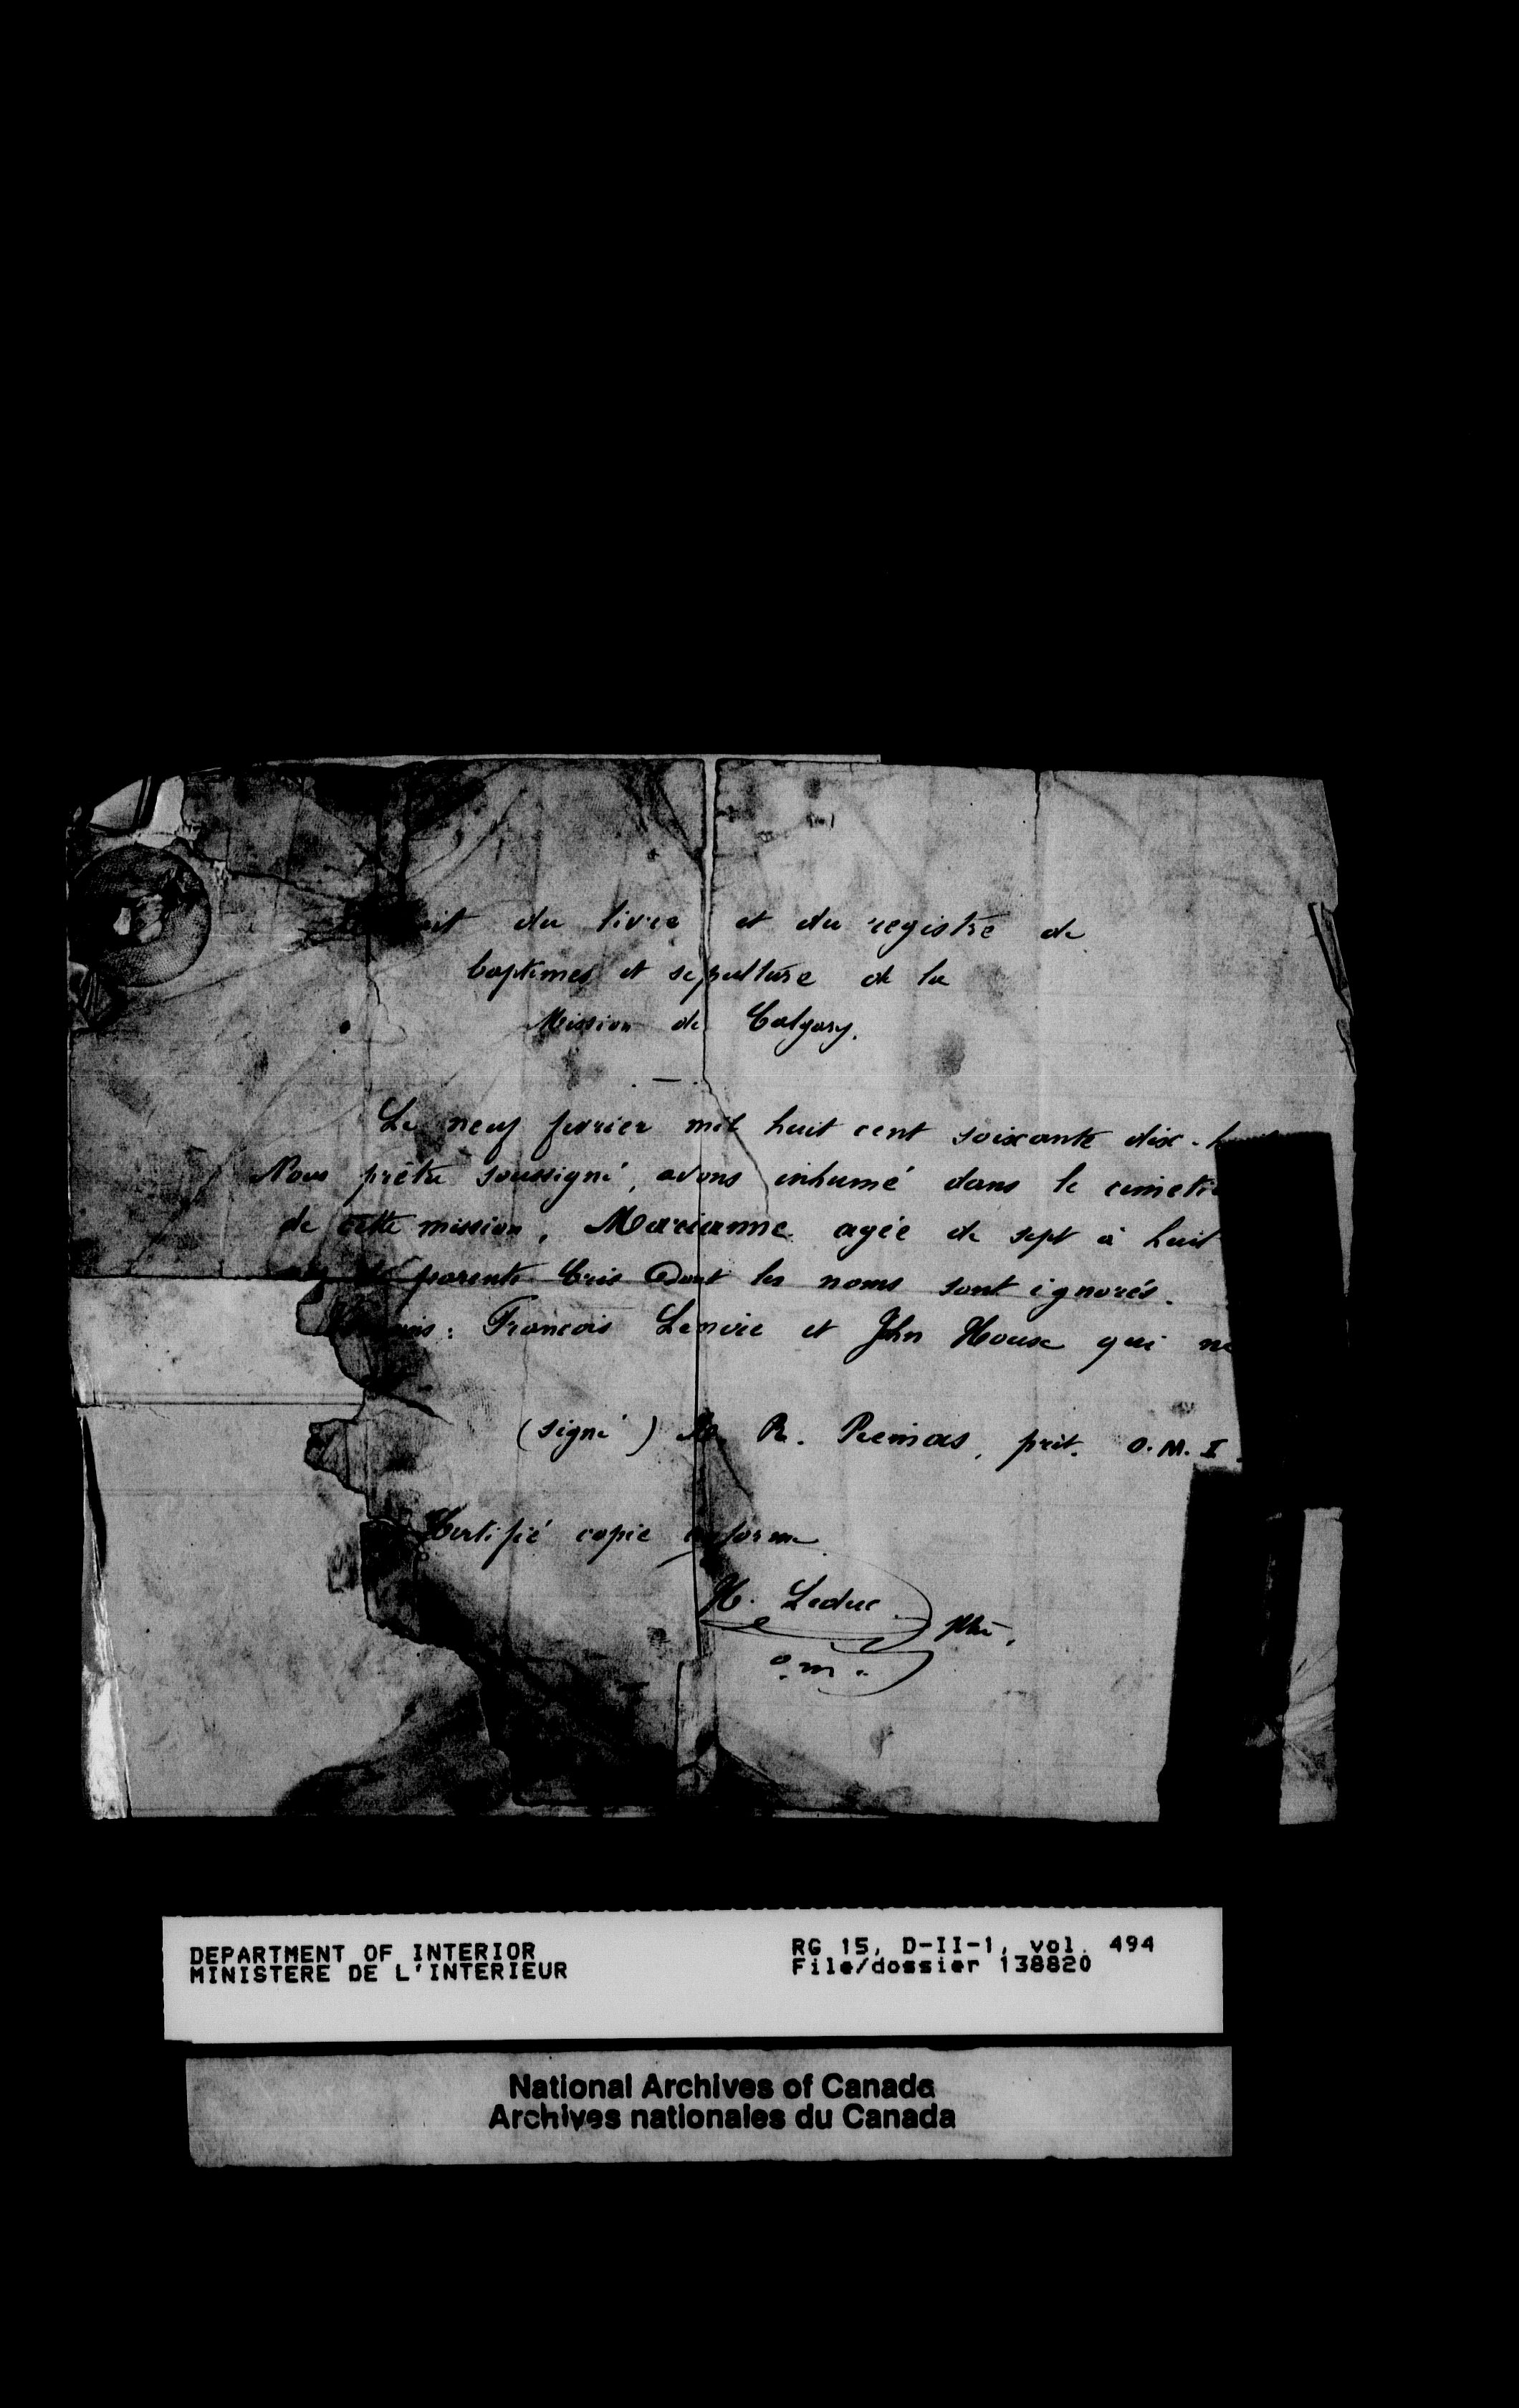 du livre et du registre de
baptêmes et sepulture de la
Mission de Calgary.
Le neuf fevrier mil huit cent soixante dix-
Nous prêtre soussigné, avons inhumé dans le cimetiè
de cette mission, Marianne agée de sept à huit
parents Cris dont les noms sont ignorés.
François Lenoir et John House qui ne
(signé) R. Remas, prêt. O.M.I.
Certifié copie conforme
H. Leduc ptre,
o.m.i.
DEPARTMENT OF INTERIOR
MINISTERE DE L'INTERIEUR
RG 15, D-II-1, vol. 494
File/dossier 138820
National Archives of Canada
Archives nationales du Canada